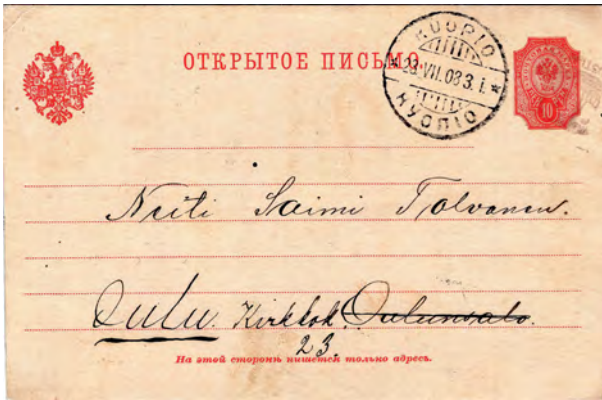 ОТКРЫТОЕ ПИСЬМО.
KUOPIO
КУОПІО
10
Neiti Saimi Tolvanen.
Oulu. Kirkkok. Oulunsalo.
23.
На этой сторонѣ пишется только адресъ.